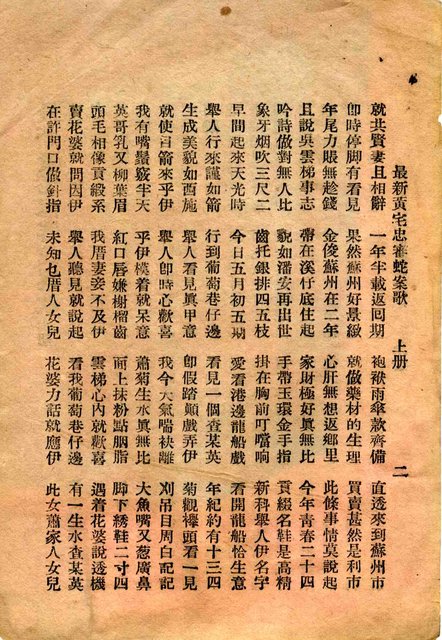 最新黃宅忠審蛇案歌 上册 二
就共賢妻且相辭 一年半載返回期 袍袱雨傘款齊備 直透來到蘇州市
即時停脚有看見 果然蘇州好景緻 就做藥材的生理 買賣甚然是利市
年尾力賬無趁錢 金俊蘇州在二年 心肝無想返鄉里 此條事情莫說起
且說吳雲梯事志 帶在溪仔底住起 家財極好真無比 今年青春二十四
吟詩做對無人比 貌如潘安再出世 手帶玉環金手指 貢緞名鞋是高精
象牙烟吹三尺二 齒托銀排四五枝 掛在胸前叮噹响 新科舉人伊名字
早間起來天光時 今日五月初五期 愛看港邊龍船戲 看開龍船恰生意
舉人行來謹如箭 行到葡萄巷仔邊 看見一個查某英 年紀約有十三四
生成美貌如西施 舉人一看見眞甲意 即假踏顛戲弄伊 菊觀褲頭看一見
就使目箭來乎伊 舉人即時心歡喜 我今大氣喘袂離 刈吊目周白記記
我有嘴鬚竅半天 乎伊模着就呆意 蕭菊生水眞無比 大魚嘴又葱廣鼻
英哥乳又柳葉眉 紅口唇嫌榭榴齒 面上抹粉點胭脂 脚下綉鞋二寸四
頭毛相像貢緞系 我厝妻妾不及伊 雲梯心內就歡喜 遇着花婆說透機
賣花婆就問因伊 舉人聽見就說起 看我葡萄巷仔邊 有一生水查某英
在許門口做針指 未知乜厝人女兒 花婆力話就應伊 此女蕭家人女兒